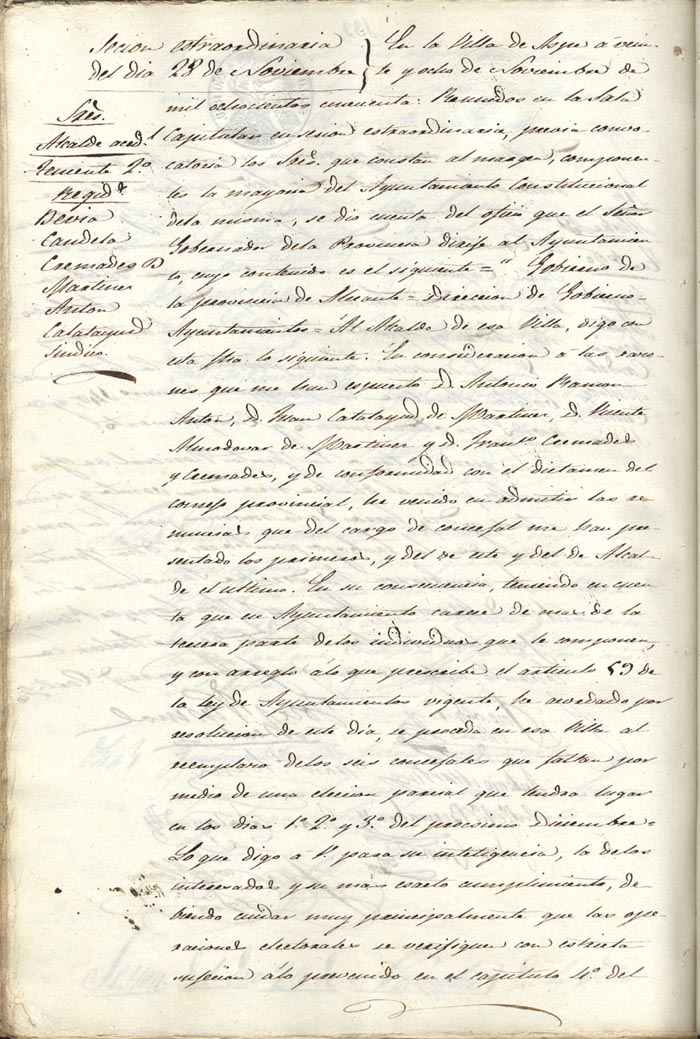 Secion estraordinaria
del dia 28 de Noviembre
Sres.
Alcalde acedl
Teniente 2º
Regidrs
Devia
Candela
Cremades D
Martinez
Anton
Calatayud
Sindico.
En la Villa de Aspe á vein-
te y ocho de Noviembre de
mil ochocientos cincuenta: Reunidos en la Sala
Capitular en sesion estraordinaria, previa convo-
catoria los Sres. que constan al margen, componen-
tes la mayoria del Ayuntamiento Constitucional
dela misma, se dio cuenta del oficio que el Señor
Gobernador dela Provincia dirije al Ayuntamien
to, cuyo contenido es el siguiente = " Gobierno de
la provincia de Alicante = Direccion de Gobierno =
Ayuntamientos = Al Alcalde de esa Villa, digo con
esta fha lo siguiente. En consideracion a las razo-
nes que me han espuesto D. Antonio Ramon
Anton, D. Fran Calatayud de Martinez, D. Vicente
Almodovar de Martinez y D. Franco Cremades
y Cremades, y de conformidad con el dictamen del
consejo provincial, he venido en admitir las re-
nuncias que del cargo de concejal me han pre-
sentado los primeros, y del de este y del de Alcal-
de el ultimo. En su consecuencia, teniendo en cuen-
ta que un Ayuntamiento carece de mas de la
tercera parte delos individuos que le componen,
y con arreglo álo que prescribe el articulo 59 de
la ley de Ayuntamientos vigente, he acordado por
resolucion de este dia, se proceda en esa Villa al
reemplazo delos seis concejales que faltan por
medio de una elecion parcial que tendra lugar
en los dias 1º 2º y 3º del procsimo Diciembre =
Lo que digo á V. para su inteligencia, la delos
interesados y su mas esacto cumplimiento, de-
biendo cuidar muy principalmente que las ope-
raciones electorales se verifiquen con estricta
sujecion álo prevenido en el capitulo 4º. del